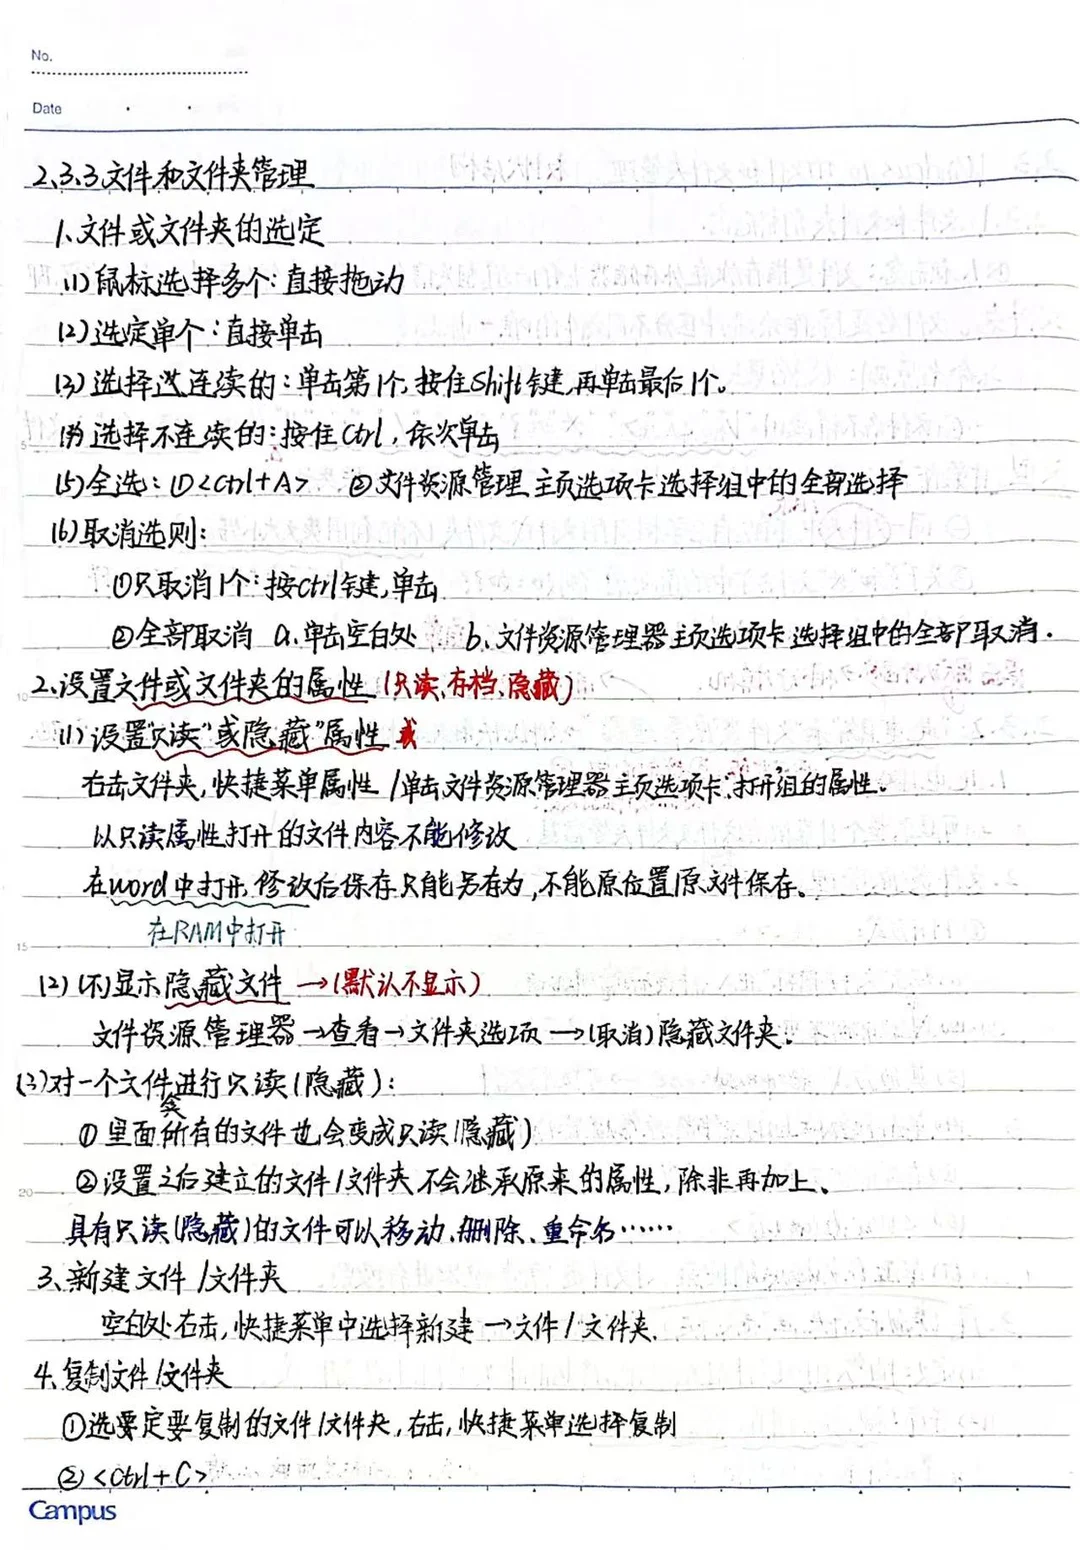 No.
Date
2.3.3文件和文件夹管理
1.文件或文件夹的选定
(1)鼠标选择多个:直接拖动
(2)选定单个:直接单击
(3)选择连续的:单击第1个,按住Shift键,再单击最后1个。
(4)选择不连续的:按住Ctrl,依次单击
(5)全选:①<Ctrl+A> ②文件资源管理 主页选项卡选择组中的全部选择
(6)取消选则:
①只取消1个:按ctrl键,单击
②全部取消 a.单击空白处 b.文件资源管理器主页选项卡选择组中的全部取消.
2.设置文件或文件夹的属性(只读、存档、隐藏)
(1)设置"只读"或隐藏"属性 或
右击文件夹,快捷菜单属性/单击文件资源管理器主页选项卡"打开组的属性。
以只读属性打开的文件内容不能修改
在word中打开,修改后保存只能另存为,不能原位置原文件保存。
在RAM中打开
(2)(不)显示隐藏文件→(默认不显示)
文件资源管理器→查看→文件夹选项→(取消)隐藏文件夹.
(3)对一个文件夹进行只读(隐藏):
①里面所有的文件也会变成只读(隐藏)
②设置之后建立的文件/文件夹不会继承原来的属性,除非再加上、
具有只读(隐藏)的文件可以移动、删除、重命名……
3、新建文件/文件夹
空白处右击,快捷菜单中选择新建→文件/文件夹.
4.复制文件/文件夹
①选定要复制的文件/文件夹,右击,快捷菜单选择复制
②<Ctrl+C>
Campus